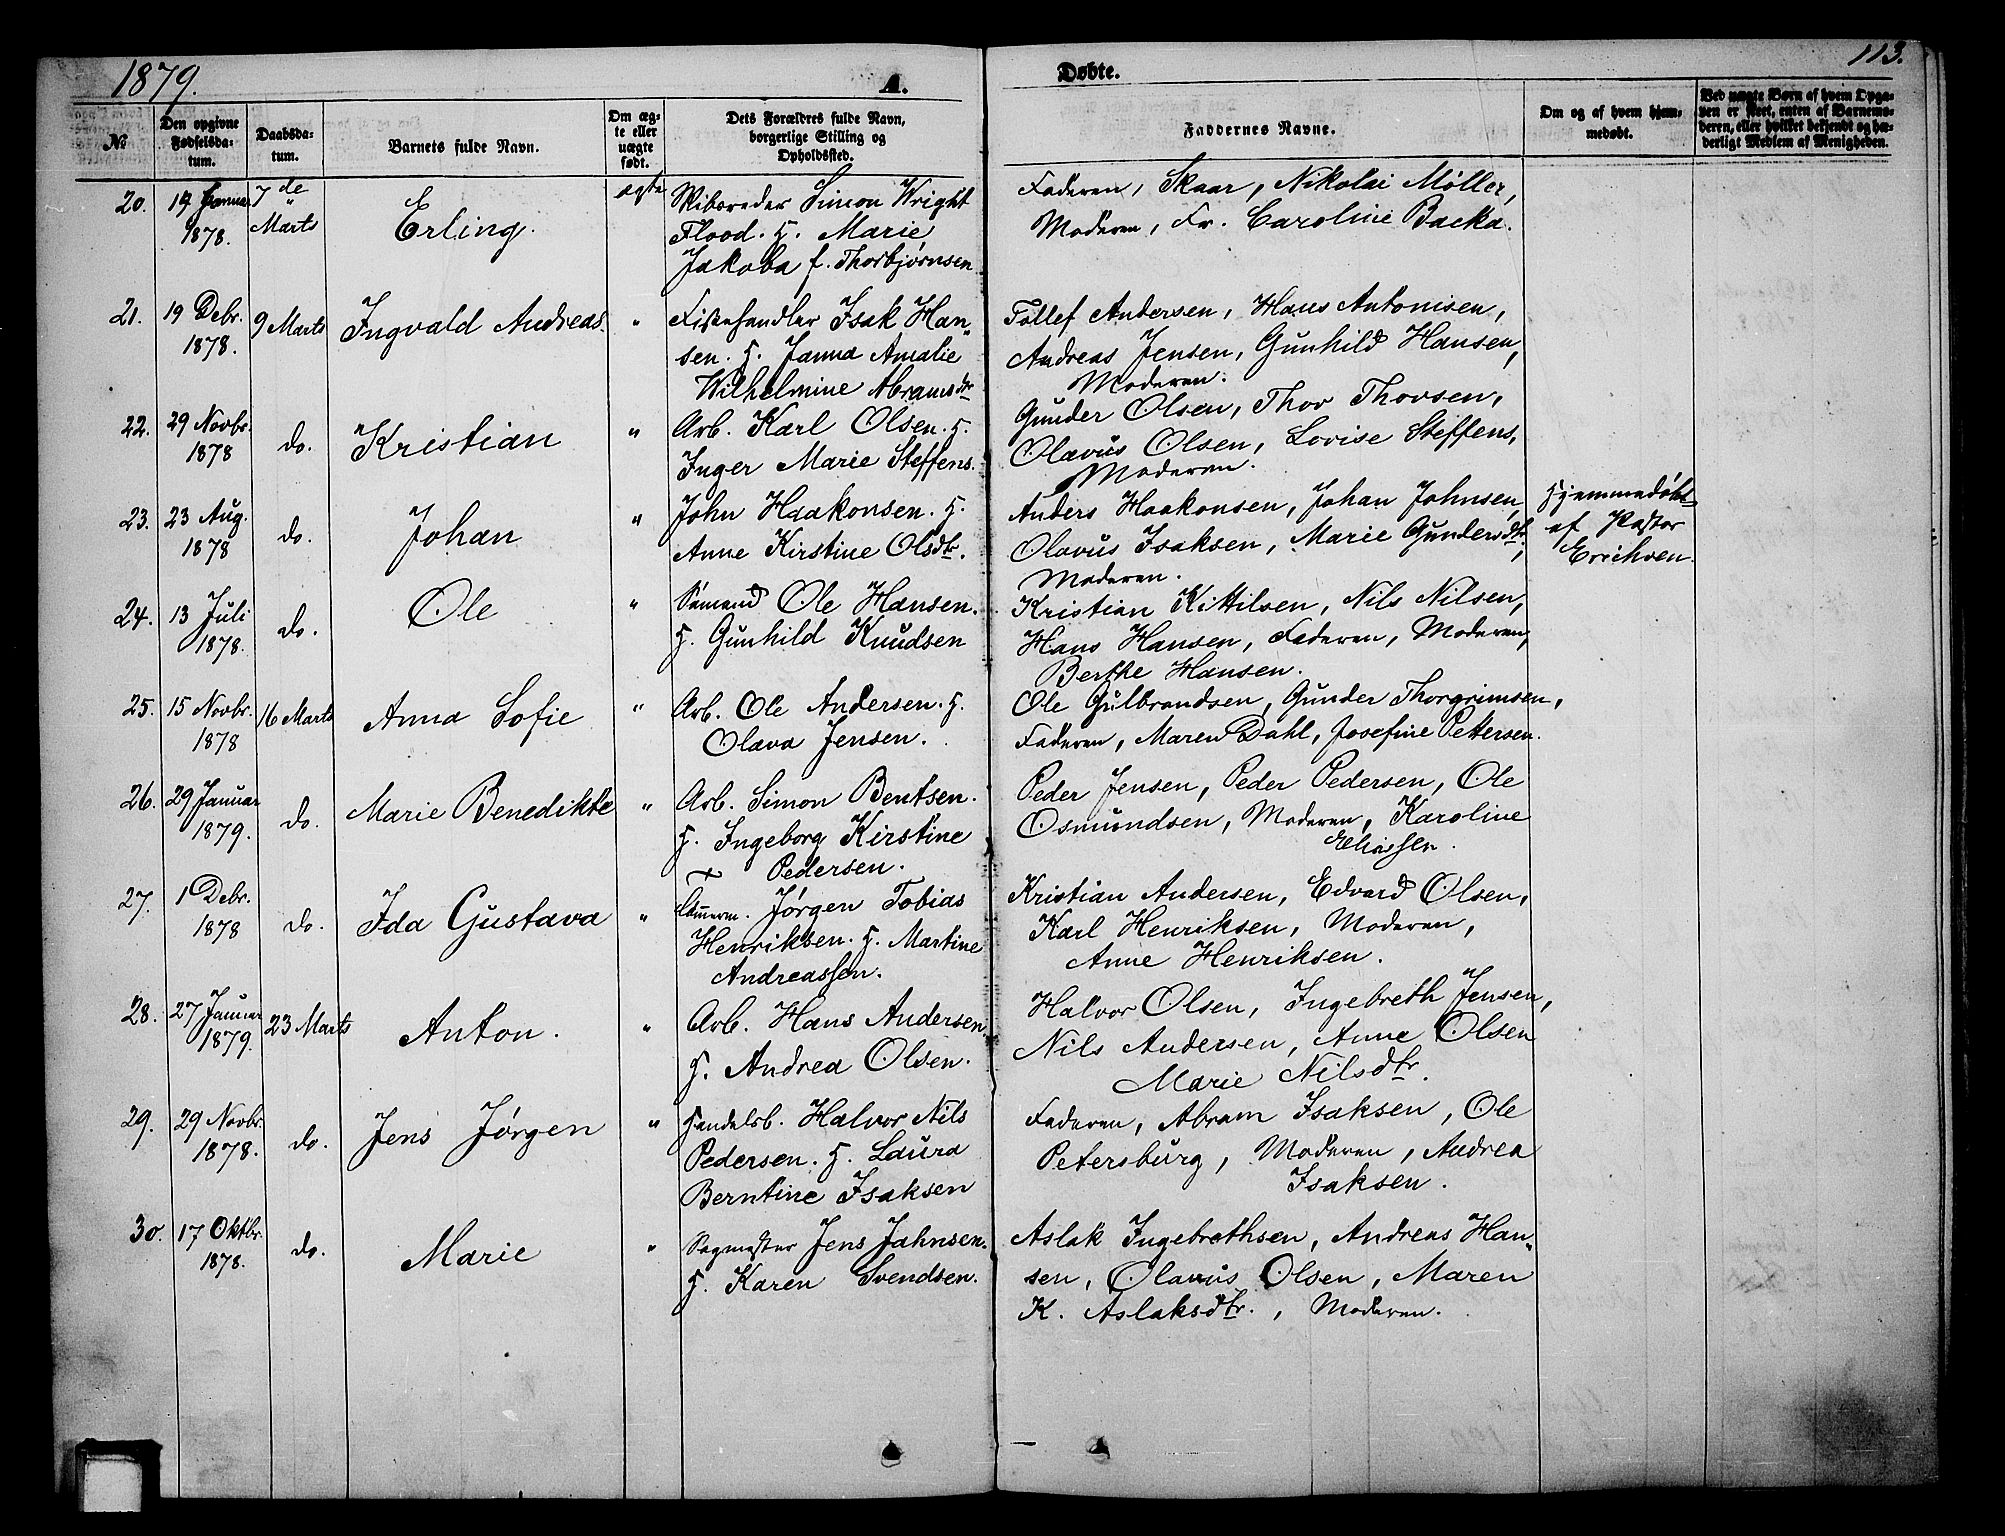 1879.
A.
Døbte.
113.
No
Den opgivne Fødselsdatum.
Daabsdatum.
Barnets fulde Navn.
Om ægte eller uægte født.
Dets Forældres fulde Navn, borgerlige Stilling og Opholdssted.
Faddernes Navne.
Om og af hvem hjemmedøbt.
Ved uægte Børn af hvem Opgaven er skeet, enten af Barnemoderen, eller hvilket bekjendt og hæderligt Medlem af Menigheden.
20.
14 Januar 1878.
7de Marts
Erling.
ægte
Skibsreder Simon Wright
Flood. H. Marie
Jakoba f. Thorbjørnsen
Faderen, Skaar, Nikolai Møller,
Moderen, Fr. Caroline Backa.
21.
19 Debr. 1878.
9 Marts
Ingvald Andreas.
"
Fiskehandler Isak Han-
sen. H. Janna Amalie
Wilhelmine Abramsdtr
Tollef Andersen, Hans Antonisen,
Andreas Jensen, Gunhild Hansen,
Moderen.
22.
29 Novbr. 1878
do.
Kristian
"
Arb. Karl Olsen. H.
Inger Marie Steffens.
Gunder Olsen, Thov Thovsen,
Olavus Olsen, Lovise Steffens,
Moderen.
23.
23 Aug. 1878
do.
Johan
"
John Haakonsen. H.
Anne Kirstine Olsdtr.
Anders Haakonsen, Johan Johnsen,
Olavus Isaksen, Marie Gundersdtr,
Moderen.
Hjemmedøbt
af Pastor
Erichsen.
24.
13 Juli 1878.
do.
Ole
"
Sømand Ole Hansen.
H. Gunhild Knudsen
Kristian Kittilsen, Nils Nilsen,
Hans Hansen, Faderen, Moderen,
Berthe Hansen.
25.
15 Novbr. 1878
16 Marts
Anna Sofie
"
Arb. Ole Andersen. H.
Olava Jensen.
Ole Gulbrandsen, Gunder Thorgrimsen,
Faderen, Maren Dahl, Josefine Pettersen.
26.
29 Januar 1879.
do.
Marie Benedikte
"
Arb. Simon Bentsen.
H. Ingeborg Kirstine
Pedersen.
Peder Jensen, Peder Pedersen, Ole
Osmundsen, Moderen, Karoline
Eliassen.
27.
1 Debr. 1878
do.
Ida Gustava
"
Jørgen Tobias
Henriksen. H. Martine
Andreassen.
Kristian Andersen, Edvard Olsen,
Karl Henriksen, Moderen,
Anne Henriksen.
28.
27 Januar 1879.
23 Marts
Anton.
"
Arb. Hans Andersen.
H. Andrea Olsen.
Halvor Olsen, Ingebreth Jensen,
Nils Andersen, Anne Olsen
Marie Nilsdtr.
29.
29 Novbr. 1878.
do.
Jens Jørgen
"
Handelsb. Halvor Nils
Pedersen. H. Laura
Berntine Isaksen
Faderen, Abram Isaksen, Ole
Petersburg, Moderen, Andrea
Isaksen.
30.
17 Oktbr. 1878.
do.
Marie
"
Sagmester Jens Jahnsen.
H. Karen Svendsen.
Aslak Ingebrethsen, Andreas Han-
sen, Olavus Olsen, Maren
K. Aslaksdtr., Moderen.